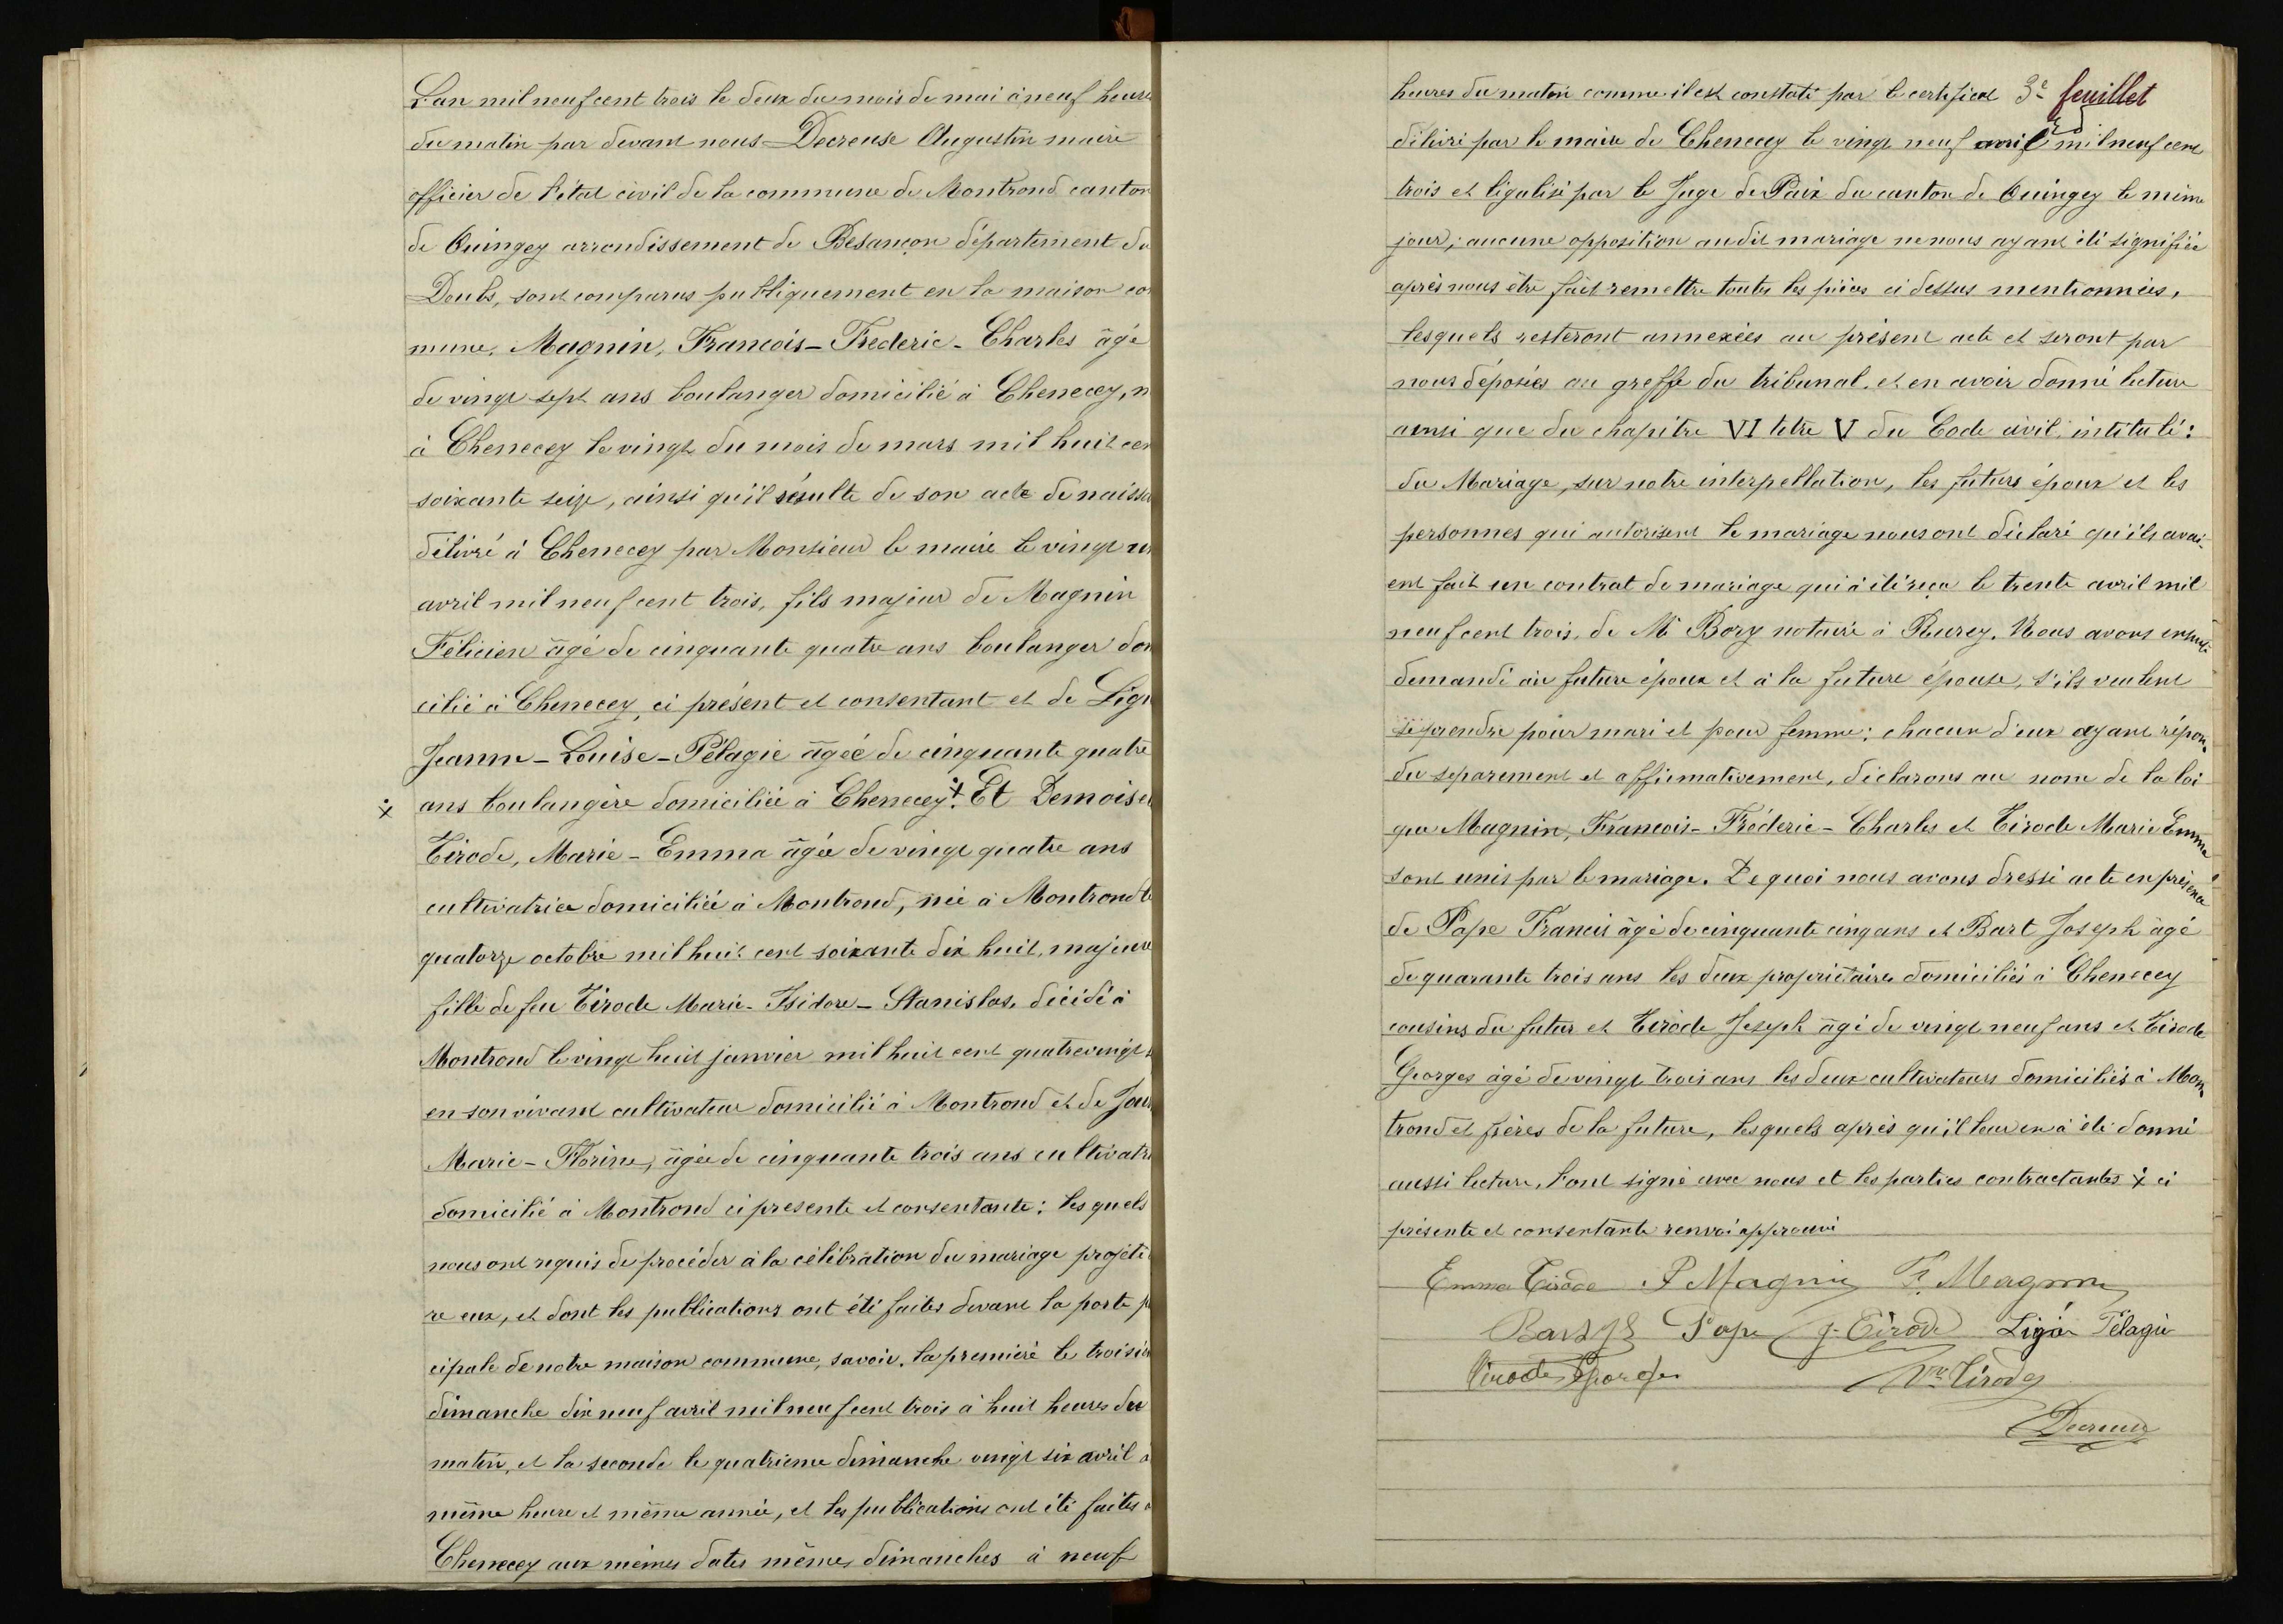 L'an mil neuf cent trois le deux du mois de mai à neuf heures
du matin par devant nous Decreuse Augustin maire
officier de l'état civil de la commune de Montrond canton
de Quingey arrondissement de Besançon département du
Doubs, sont comparus publiquement en la maison com
mune, Magnin, Francois-Frederic-Charles âgé
de vingt sept ans boulanger domicilié à Chenecey, n
à Chenecey le vingt du mois de mars mil huit cen
soixante seize, ainsi qu'il résulte de son acte de naissa
délivré à Chenecey par Monsieur le maire le vingt n
avril mil neuf cent trois, fils majeur de Magnin
Félicien âgé de cinquante quatre ans boulanger dom
cilié à Chenecey, ci présent et consentant et de Ligi
Jeanne-Louise-Pélagie âgée de cinquante quatre
ans boulangère domiciliée à Chenecey. Et Demoisel
Tirode, Marie-Emma âgée de vingt quatre ans
cultivatrice domiciliée à Montrond, née à Montrond le
quatorze octobre mil huit cent soixante dix huit, majeure
fille de feu Tirode Marie-Isidore-Stanislas, décédé à
Montrond le vingt huit janvier mil huit cent quatrevingt
en son vivant cultivateur domicilié à Montrond et de
Marie-Florine, âgée de cinquante trois ans cultivatri
domicilié à Montrond ci presente et consentante: les quels
nous ont requis de procéder à la célébration du mariage projeté
re eux, et dont les publications ont été faites devant la porte p
cipale de notre maison commune, savoir, la premiére le troisiè
dimanche dix neuf avril mil neuf cent trois à huit heures du
matin, et la seconde le quatrieme dimanche vingt six avril à
même heure et même année, et les publications ont été faites à
Chenecey aux mêmes dates mêmes dimanches à neuf
3e feuillet
heures du matin comme il est constaté par le certificat
délivré par le maire de Chenecey le vingt neuf avril mil neuf cent
trois et légalisé par le Juge de Paix du canton de Quingey le même
jour; aucune opposition audit mariage ne nous ayant été signifiée
après nous être fait remettre toutes les pièces ci dessus mentionnées,
lesquels resteront annexées au présent acte et seront par
nous déposées au greffe du tribunal. et en avoir donné lecture
ainsi que du chapitre VI titre V du Code civil, intitulé:
du Mariage, sur notre interpellation, les futurs époux et les
personnes qui autorisent le mariage nous ont déclaré qu'ils avai-
ent fait un contrat de mariage qui à été reçu le trente avril mil
neuf cent trois, de Me Bory notaire à Rurey. Nous avons ensuite
demandé au future époux et à la future épouse, s'ils veulent
se prendre pour mari et pour femme: chacun d'eux ayant répon-
du separement et affirmativement, déclarons au nom de la loi
que Magnin, Francois-Fréderic-Charles et Tirode Marie Emma
sont unis par le mariage. De quoi nous avons dressé acte en présence
de Pape Francis âgé de cinquante cinq ans et Bart Joseph âgé
de quarante trois ans les deux propriétaires domiciliés à Chenecey
cousins du futur et Tirode Joseph âgé de vingt neuf ans et Tirode
Georges âgé de vingt trois ans les deux cultivateurs domiciliés à Mon-
trond et frères de la future, lesquels après qu'il leur en à été donné
aussi lecture, l'ont signé avec nous et les parties contractantes x ci
présente et consentante renvoi approuvé
Emma Tirode F Magnin F. Magnin
Bart Js Pape J. Tirode Ligier Pélagie
Tirode Georges Vve Tirode
Decreuse